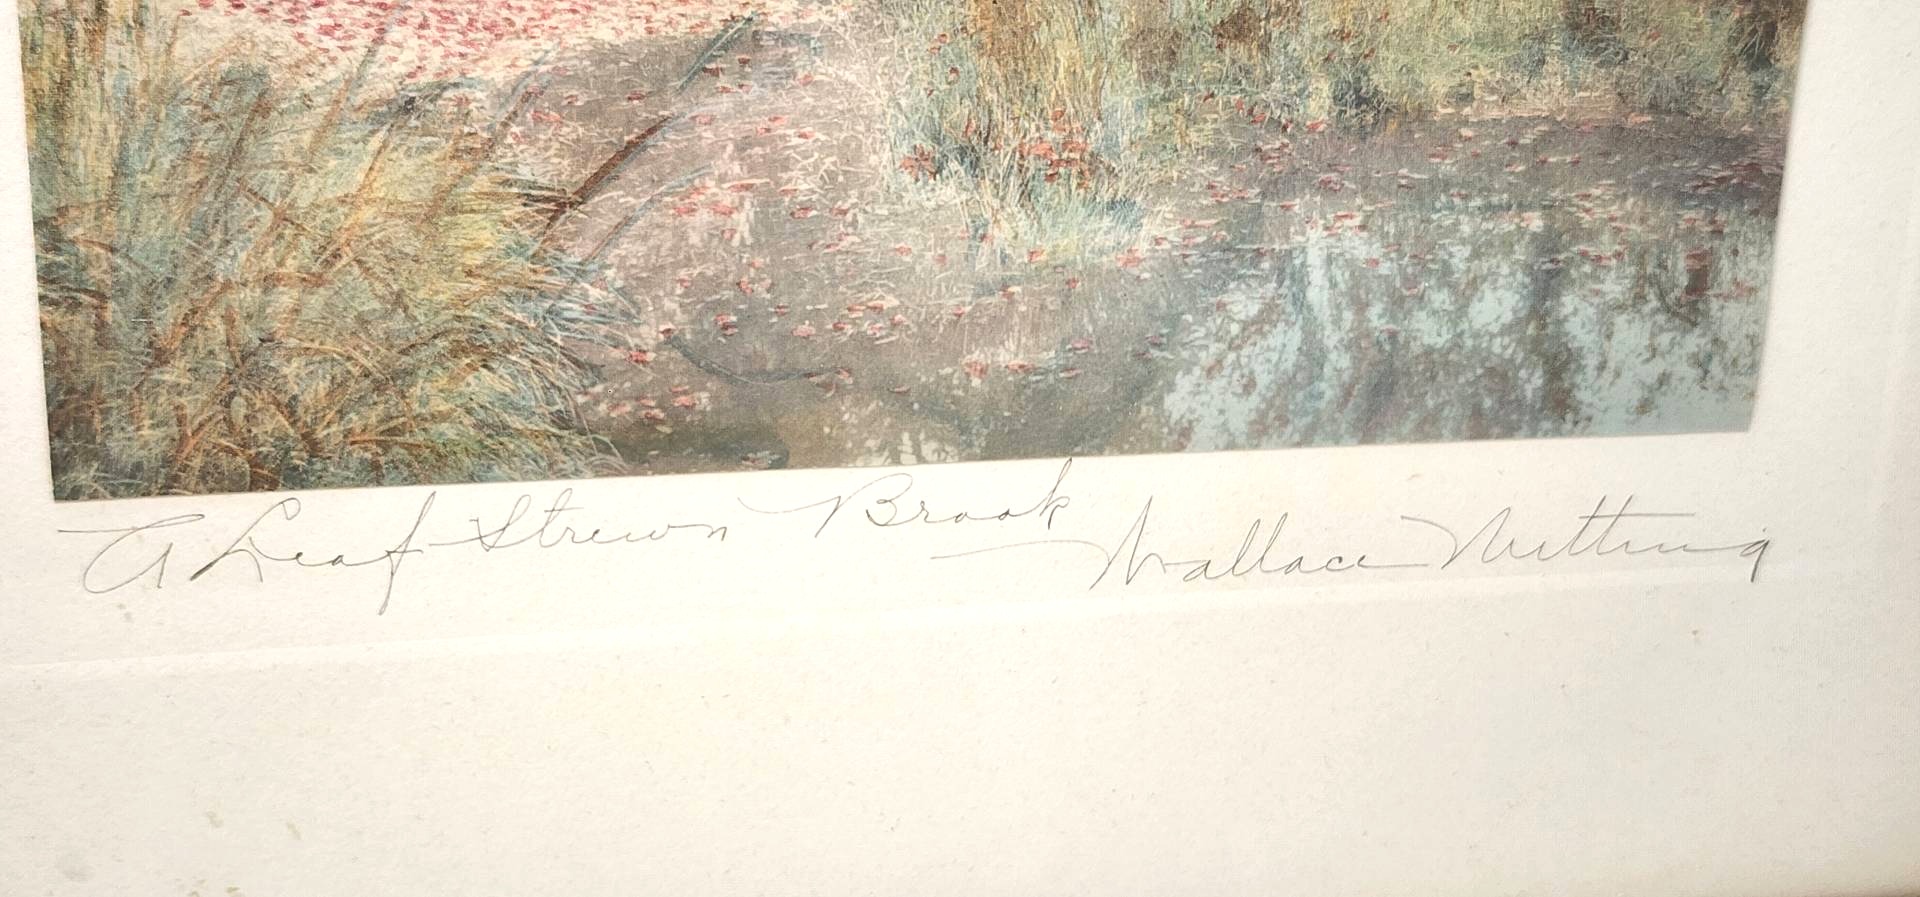 A Leaf Strewn Brook
Wallace Nutting